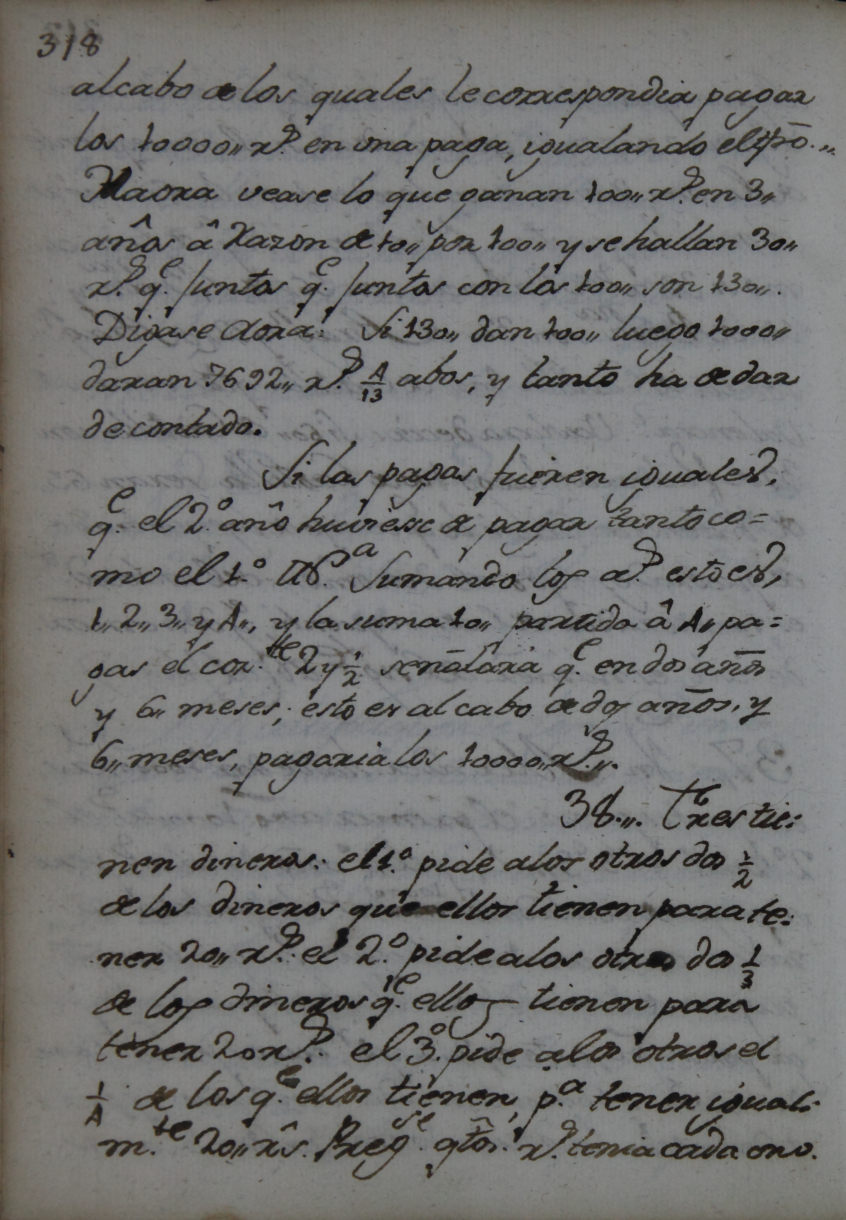 318
alcabo de los quales le correspondia pagar
los 10000,, rs. en una paga, igualando el tpō...
Y aora vease lo que ganan 100,, rs. en 3,,
años â Razon de 10,, por 100,, y se hallan 30,,
rs. qe. Juntos qe. Juntos con los 100,, son 130,,.
Digase aora: Si 130,, dan 100,, luego 1000,,
daran 7692,, rs. 4/13 abos, y tanto ha de dar
de contado.
Si las pagas fueren iguales,
qe. el 2º año huviese de pagar tanto co=
mo el 1.º Sumando los as. esto es,
1,, 2,, 3,, y 4,, y la suma 10,, partida â 4,, pa=
gas el cor.te 2 y 1/2 señalará qe. en dos años
y 6,, meses; esto es al cabo de dos años, y
6,, meses, pagaria los 10000,, rs.,,.
38... Tres tie:
nen dineros: el 1.º pide a los otros dos 1/2
de los dineros que ellos tienen para te:
ner 20,, rs. el 2.º pide a los otros dos 1/3
de los dineros qe. ellos tienen para
tener 20 rs. el 3.º pide a los otros el
1/4 de los qe ellos tienen, p.a tener igual-
m.te 20,, rs. Preg.se qtos. rs. tenia cada uno.